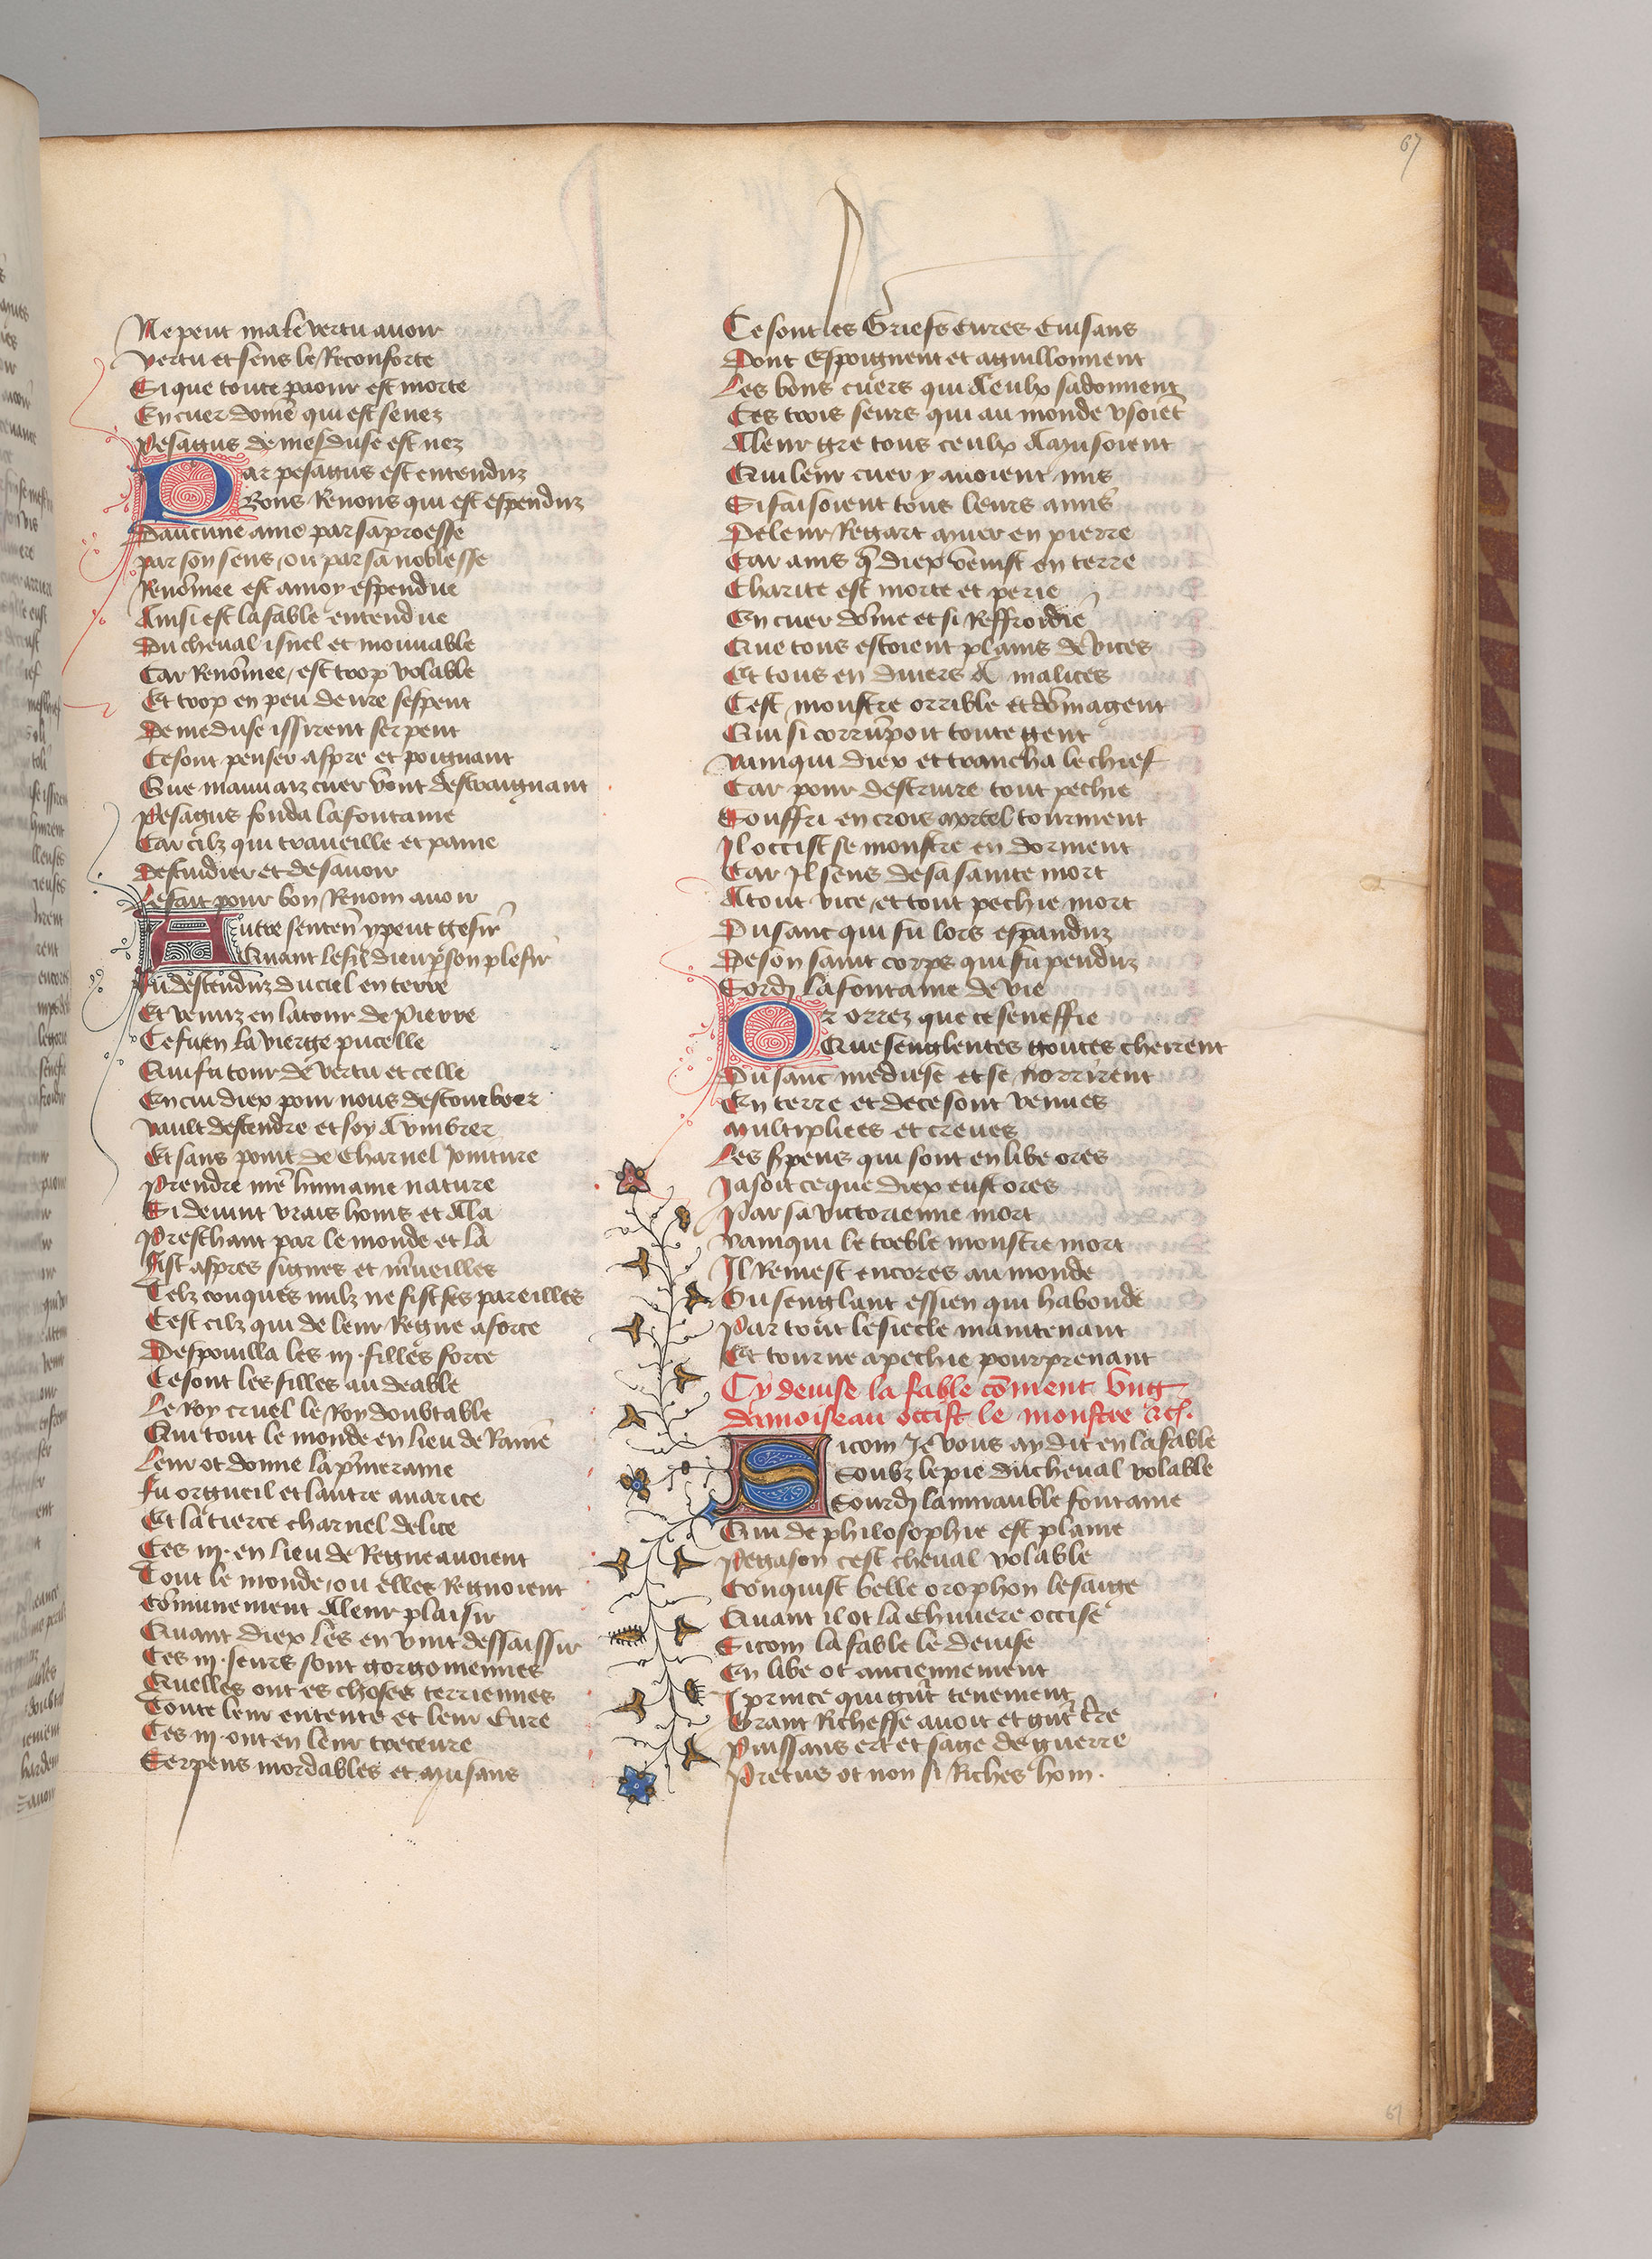 67
Ne peut male vertu avoir
Vertu et sens le Reconforte
Si que toute paour est morte
En cuer dome qui est senez
Pesagus de meduse est nez
Par pesagus est entenduz
Bons Renons qui est espenduz
Daucune ame par sa proesse
par son sens, ou par sa noblesse
Renomee est amoy espendue
Ainsi est la fable entendue
Du cheval isnel et mouuable
Car Renomee, est trop volable
Et trop en peu deure sespent
De meduse issirent serpent
Ce sont penser aspre et poignant
Que mauuaiz cuer vont destraignant
Pesagus fonda la fontaine
Car cilz qui traueille et paine
Destudier et de sauoir
Le fait pour bon Renom auoir
Autre senten y peut gesir
Quant le filz dieu p son plesir
Fu descenduz du ciel en terre
Et venuz en la tour de Pierre
Ce fu en la vierge pucelle
Qui fu tour de vertu et celle
En cui diex pour nous descombrer
Vault descendre et soy Aumbrer
Et sans point de Charnel Jointure
Prendre me humaine nature
Si deuint vrais homs et Ala
Preschant par le monde et la
Fist aspres signes et mueilles
Telz conques nulz ne fist ses pareilles
Cest cilz qui de leur Regne a force
Despouilla les iij. filles force
Ce sont les filles au deable
Le Roy cruel le Roy doubtable
Qui tout le monde en lieu de Raine
Leur ot donne la pmeraine
Fu orgueil et lautre auarice
Et la tierce charnel delice
Ces iij. en lieu de Regne auoient
Tout le monde, ou elles Regnoient
Comunement A leur plaisir
Quant diex les en vint dessaissir
Ces iij. seurs sont gorgoniennes
Quelles ont es choses terriennes
Toute leur entente et leur Cure
Ces iij. ont en leur treceure
Serpens mordables et nuisans
Ce sont les Griefs cures Cuisans
Dont Espoignent et aguillonnent
Les bons cuers qui A eulx sadonnent
Ces trois seurs qui au monde vsoiet
A leur gre tous ceulx Amusoient
Qui leur cuer y auoient mis
Si faisoient tous leurs amis
De leur Regart muer en pierre
Car ains q diex venist en terre
Charite est morte et perie
En cuer dome et si Reffroidie
Que tous estoient plains de vices
Et tous en diuers A malices
Cest monstre orrible et domagent
Qui si corrumpoit toute gent
Vainqui diex et trancha le chief
Car pour destruire tout pechie
Souffri en crois mortel tourment
Il occist se monstre en dorment
Car Il sens de sa sainte mort
A tout vice, et tout pechie mort
Du sanc qui fu lors espanduz
De son saint corps qui fu penduz
Sordi la fontaine de vie
Or orrez que ce seneffie
Que senglentes goutes cheirent
Du sanc meduse et se norrirent
En terre et de ce sont venues
Multipliees et creues
Les spens qui sont en libe ores
Ja soit ce que diex eust ores
Par sa victorienne mort
Vainqui le treble monstre mort
Il Remest encores au monde
Du senglant essien qui habonde
Par tout le siecle maintenant
Et tourne a pechie pourprenant
Cy deuise la fable coment vng
damoiseau occist le monstre etc.
Sicom Je vous ay dit en la fable
Soubz le pie du cheval volable
Sourdi la mirauble fontaine
Qui de philosophie est plaine
Pegason cest cheval volable
Conquist belle orophon le saige
Quant il ot la Chimere occise
Sicom la fable le deuise
En libe ot anciennement
I prince qui gnt tenement
Grant Richesse auoit et gnt tre
Puissans ert et sage de guerre
Pretus ot non si Riches hom.
67